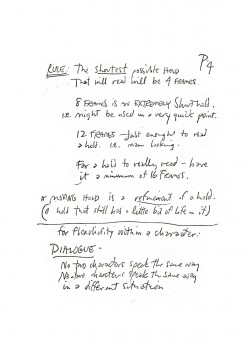 P4
RULE: The shortest possible HOLD
That will read will be 4 FRAMES.
8 FRAMES is an EXTREMELY Short hold.
i.e. might be used in a very quick point.
12 FRAMES - just enough to read
a hold. i.e. man looking.
For a hold to really read - have
it a minimum of 16 FRAMES.
A MOVING HOLD is a refinement of a hold.
(A hold that still has a little bit of life in it)
for flexibility within a character:
DIALOGUE -
No two characters speak the same way
No two characters speak the same way
in a different situation